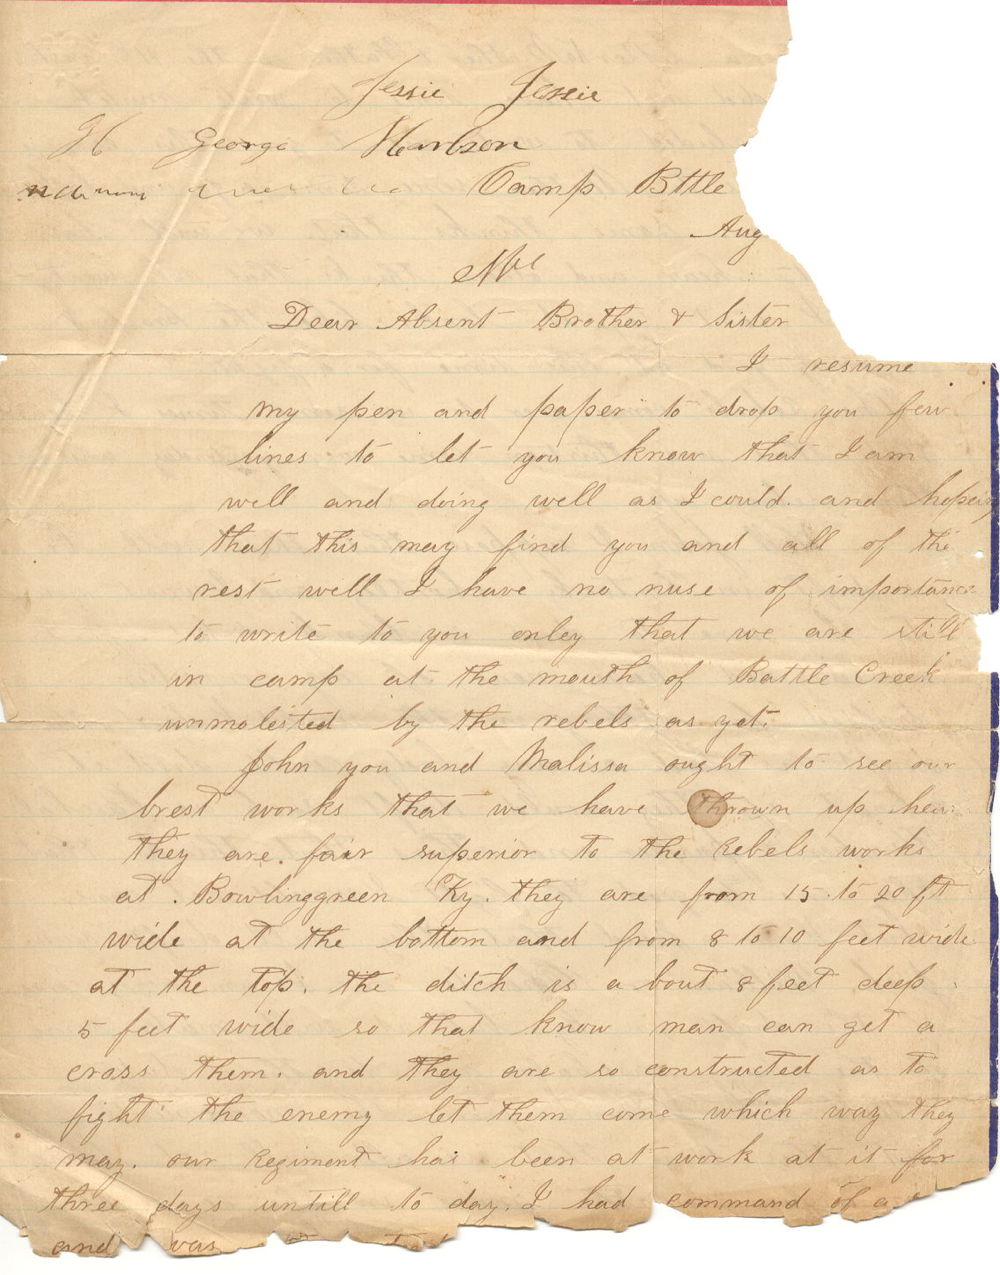 Jessie Jessie
H George Harlson
Camp Bttle
Aug
Mrs
Dear Absent Brother & Sister
I resume
my pen and paper to drop you few
lines to let you know that I am
well and doing well as I could. and hopeing
that this may find you and all of the
rest well I have no nuse of importance
to write to you onley that we are still
in camp at the mouth of Battle Creek
unmolested by the rebels as yet.
John you and Malissa ought to see our
brest works that we have thrown up hear
they are fair superior to the Rebels works
at Bowlinggreen Ky. they are from 15 to 20 ft
wide at the bottom and from 8 to 10 feet wide
at the top. the ditch is a bout 8 feet deep
5 feet wide so that know man can get a
cross them. and they are so constructed as to
fight the enemy let them come which way they
may. our Regiment has been at work at it for
three days untill to day. I had command of a
and was